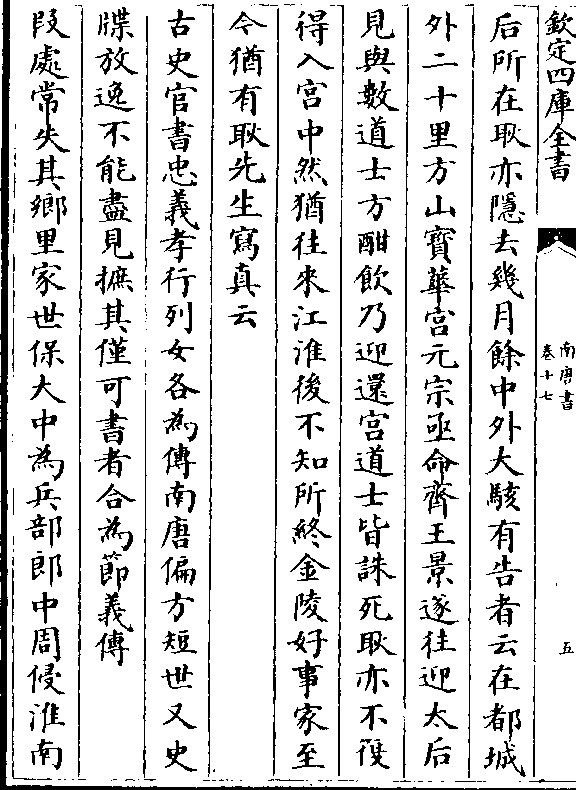 欽定四庫全書
南唐書
卷十七
五
后所在耿亦隱去幾月餘中外大駭有告者云在都城
外二十里方山寳華宫元宗亟命齊王景遂往迎太后
見與數道士方酣飲乃迎還宫道士皆誅死耿亦不復
得入宫中然猶往來江淮後不知所終金陵好事家至
今猶有耿先生寫真云
古史官書忠義孝行列女各為傳南唐偏方短世又史
牒放逸不能盡見摭其僅可書者合為節義傳
段處常失其鄉里家世保大中為兵部郎中周侵淮南